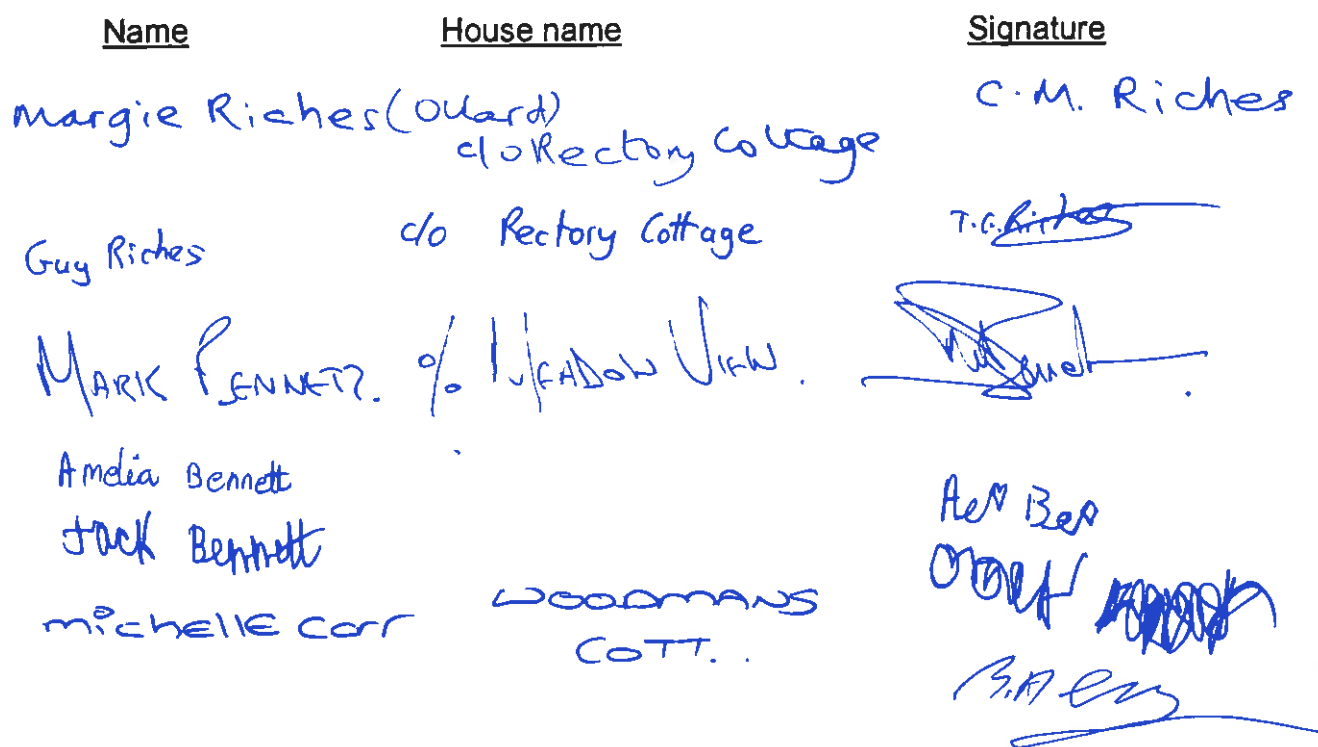 Name House name Signature
Margie Riches (Ollard) C.M. Riches
c/o Rectory Cottage
Guy Riches c/o Rectory Cottage T.G. Riches
MARK BENNETT. % MEADOW VIEW.
Amelia Bennett
Jack Bennett
michelle carr WOODMANS
COTT..